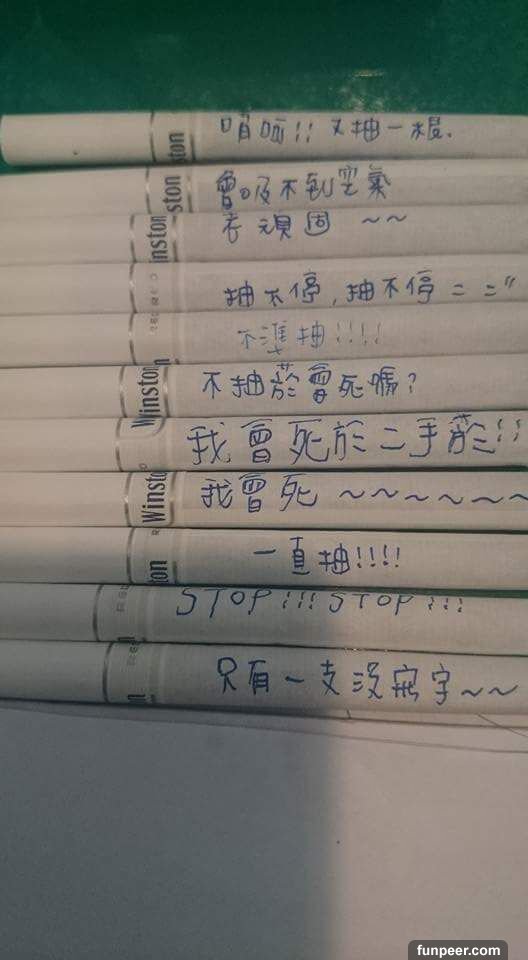 !! 又抽一根.
ston
會吸不到空氣
ston
老頑固 ~~
inston
抽不停, 抽不停 = ="
不準抽!!!!
不抽菸會死嗎?
Winston
我會死於二手菸!!
我會死~~~~~~
Winston
一直抽!!!!
ton
STOP!!! STOP!!!
只有一支沒寫字~~
funpeer.com